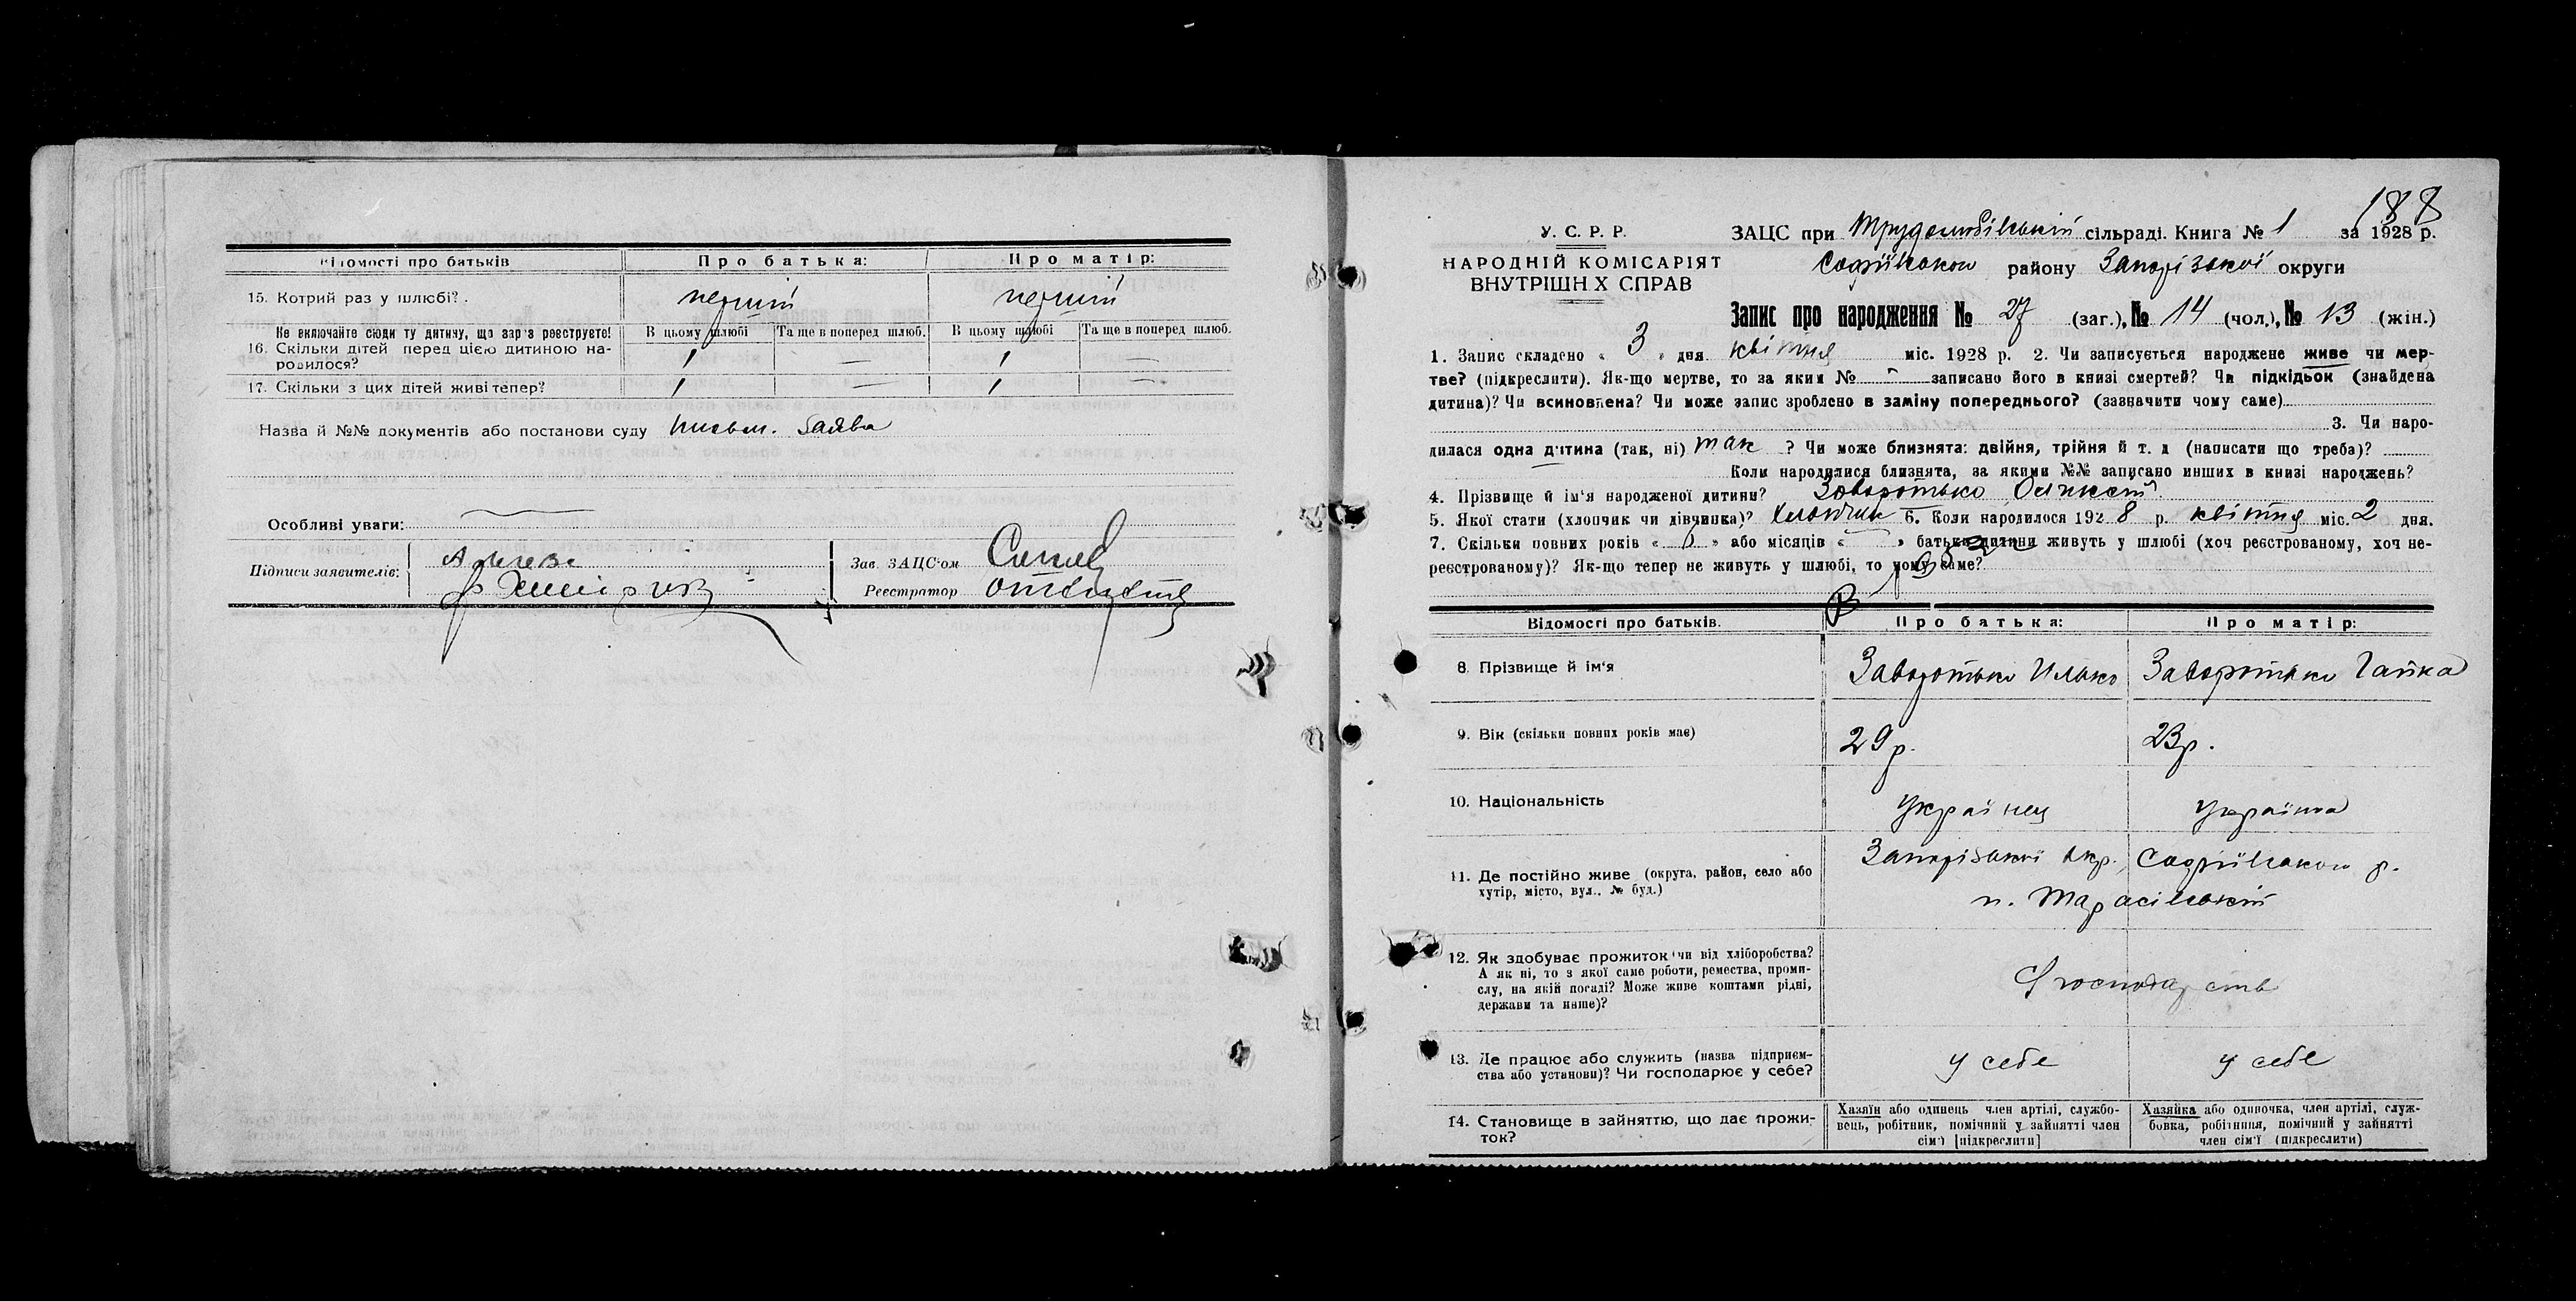 Відомості про батьків
Про батька:
Про матір:
15. Котрий раз у шлюбі?
перший
перший
Не включайте сюди ту дитину, що зараз реєструєте!
В цьому шлюбі
Та ще в поперед шлюб.
В цьому шлюбі
Та ще в поперед шлюб.
16. Скільки дітей перед цією дитиною на-
родилося?
1 — 1 —
17. Скільки з цих дітей живі тепер?
1 — 1 —
Назва й №№ документів або постанови суду письм. заява
Особливі уваги:
Підписи заявителів:
Зав. ЗАЦС'ом
Реєстратор
188
У. С. Р. Р.
НАРОДНІЙ КОМІСАРІЯТ
ВНУТРІШН Х СПРАВ
ЗАЦС при Трудолюбівській сільраді. Книга № 1 за 1928 р.
Софіївського району Запорізької округи
Запис про народження № 27 (заг.), № 14 (чол.), № 13 (жін.)
1. Запис складено « 3 » дня квітня міс. 1928 р. 2. Чи записується народжене живе чи мер-
тве? (підкреслити). Як-що мертве, то за яким № - записано його в книзі смертей? Чи підкідьок (знайдена
дитина)? Чи всиновлена? Чи може запис зроблено в заміну попереднього? (зазначити чому саме)
3. Чи наро-
дилася одна дитина (так, ні) так ? Чи може близнята: двійня, трійня й т. д (написати що треба)?
Коли народилися близнята, за якими №№ записано инших в книзі народжень?
4. Прізвище й ім'я народженої дитини? Заворотько
5. Якої стати (хлопчик чи дівчинка)? Хлопчик 6. Коли народилося 1928 р. квітня міс. 2 дня.
7. Скільки повних років « » або місяців « » батьки дитини живуть у шлюбі (хоч реєстрованому, хоч не-
реєстрованому)? Як-що тепер не живуть у шлюбі, то чому саме?
Відомості про батьків.
Про батька:
Про матір:
8. Прізвище й ім'я
Заворотько Илько
Заворотько Гапка
9. Вік (скільки повних років має)
29 р.
23 р.
10. Національність
Українец
Українка
11. Де постійно живе (округа, район, село або
хутір, місто, вул.. № буд.)
Запорізької окр. Софіївського р.
п. Тарасівській
12. Як здобуває прожиток чи від хліборобства?
А як ні, то з якої саме роботи, ремества, проми-
слу, на якій посаді? Може живе коштами рідні,
держави та инше)?
С/господарств
13. Де працює або служить (назва підприєм-
ства або установи)? Чи господарює у себе?
у себе
у себе
14. Становище в зайняттю, що дає прожи-
ток?
Хазяїн або одинець член артілі, службо-
вець, робітник, помічний у зайнятті член
сім'ї [підкреслити]
Хазяйка або одиночка, член артілі, служ-
бовка, робітниця, помічний у зайнятті
член сім'ї (підкреслити)